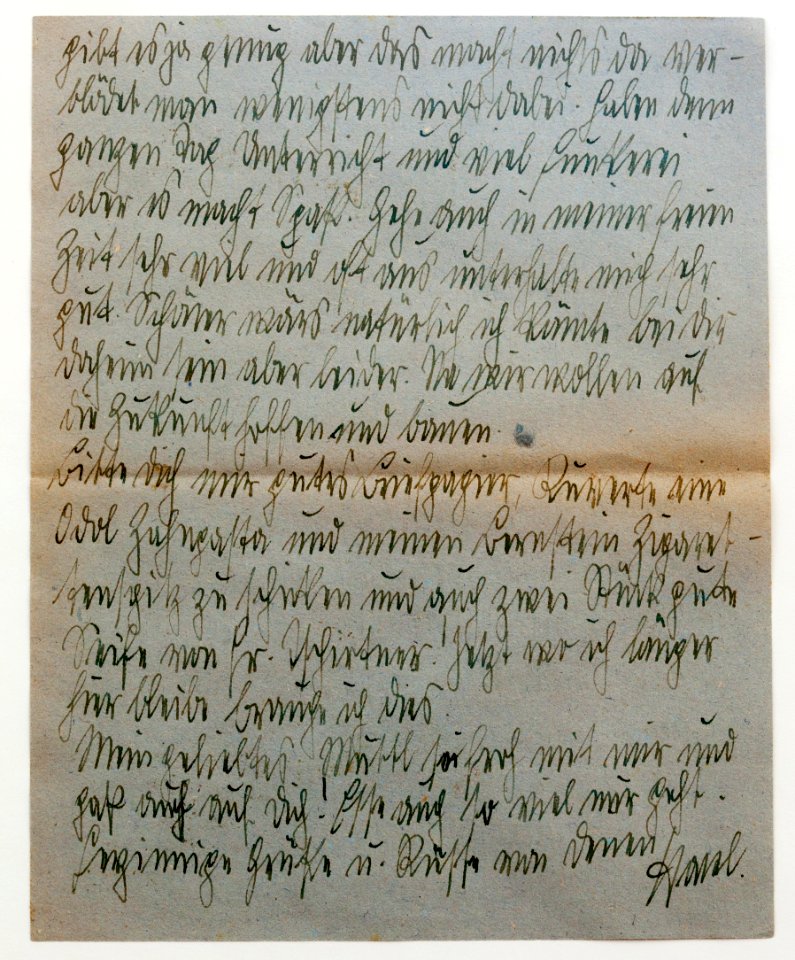 gibt es ja genug aber das macht nichts da ver-
blödet man wenigstens nicht dabei. Haben denn
ganzen Tag Unterricht und viel Funkerei
aber es macht Spaß. Gehe auch in meiner freien
Zeit sehr viel und oft aus unterhalte mich sehr
gut. Schöner wärs natürlich ich könnte bei dir
daheim sein aber leider. Na wir wollen auf
die Zukunft hoffen und bauen.
Bitte dich mir gutes Briefpapier, Kuverte eine
Odol Zahnpasta und meinen Bernstein Zigaret-
tenspitz zu schicken und auch zwei Stück gute
Seife von Fr. Tschirtner! Jetzt wo ich länger
hier bleibe brauche ich dies.
Mein geliebtes Muttl sei froh mit mir und
paß auch auf dich! Esse auch so viel nur geht.
Herzinnige Grüße u. Küsse von deinen